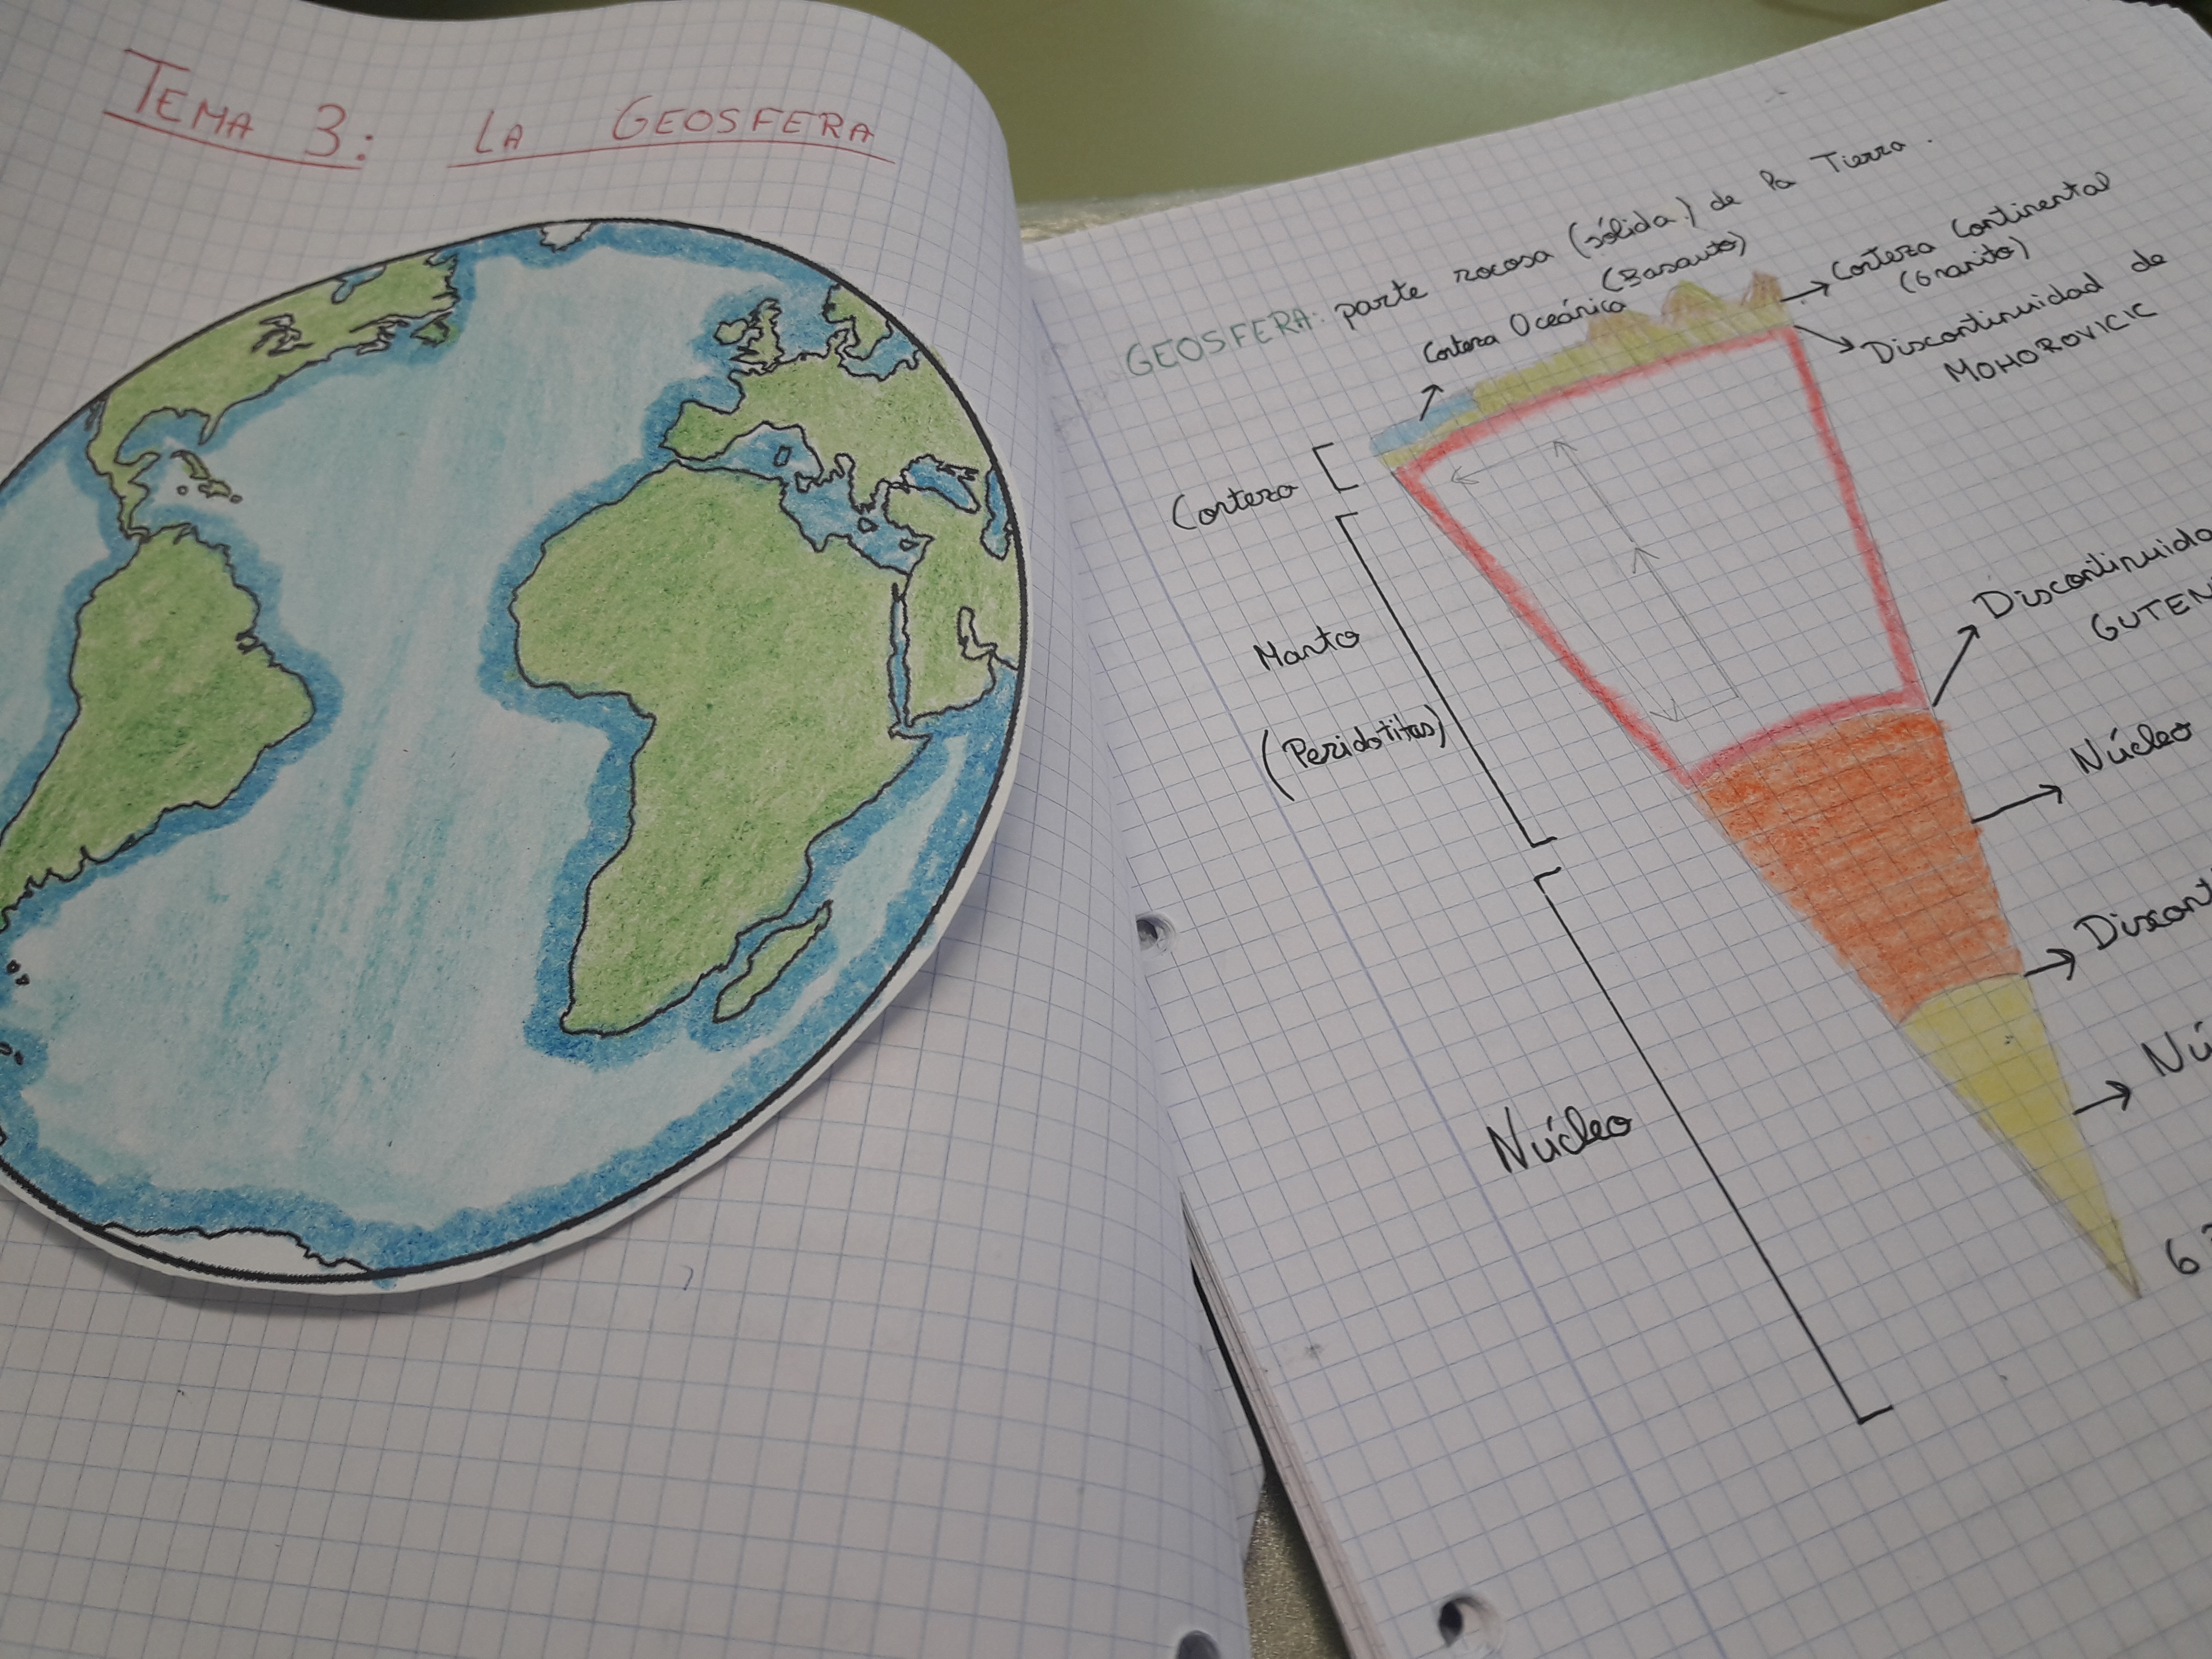 TEMA 3: LA GEOSFERA
GEOSFERA: parte rocosa (sólida) de la Tierra.
Corteza Oceánica
(Basauto)
Corteza Continental
(Granito)
Discontinuidad de
MOHOROVICIC
Corteza
Manto
(Peridotitas)
Núcleo
Núcleo